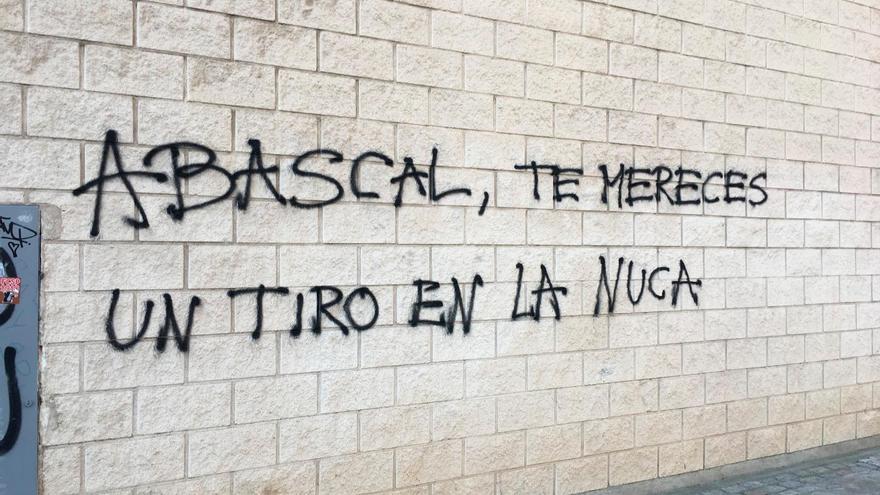 ABASCAL, TE MERECES
UN TIRO EN LA NUCA